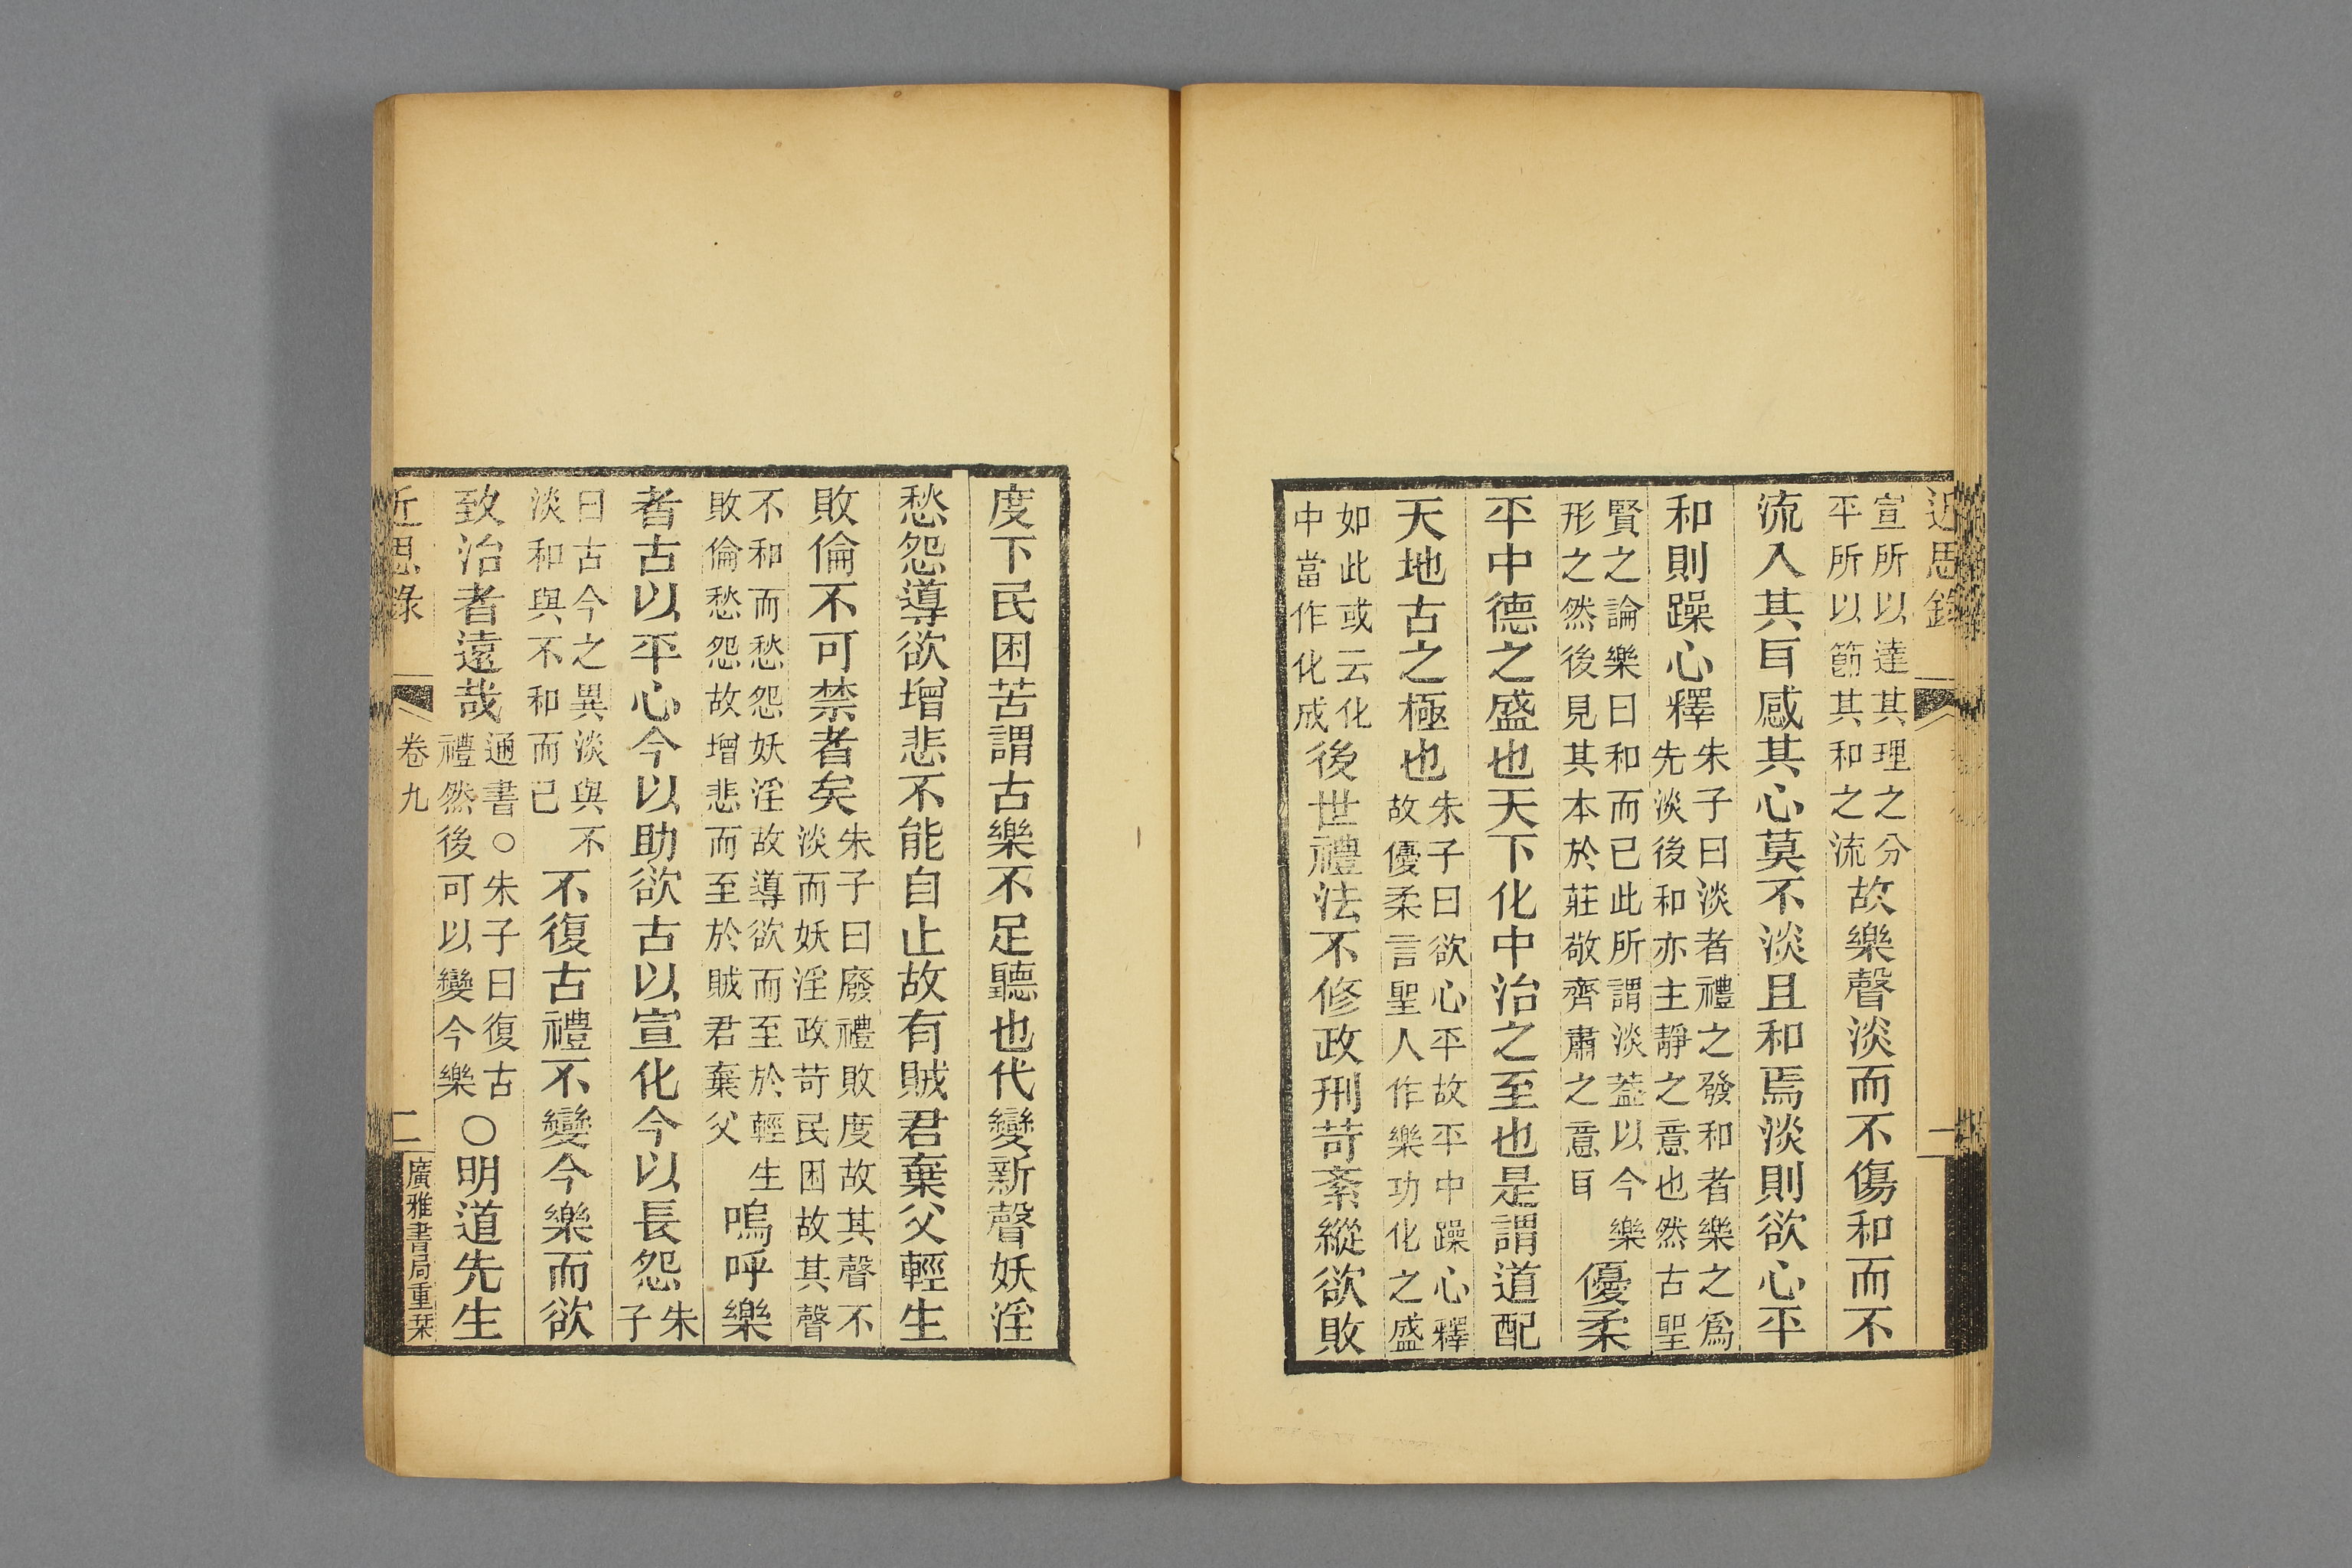 近思錄
宣所以達其理之分
平所以節其和之流
故樂聲淡而不傷和而不
流入其耳感其心莫不淡且和焉淡則欲心平
和則躁心釋
朱子曰淡者禮之發和者樂之爲
先淡後和亦主靜之意也然古聖
賢之論樂曰和而已此所謂淡葢以今樂
形之然後見其本於莊敬齊肅之意耳
優柔
平中德之盛也天下化中治之至也是謂道配
天地古之極也
朱子曰欲心平故平中躁心釋
故優柔言聖人作樂功化之盛
如此或云化
中當作化成
後世禮法不修政刑苛紊縱欲敗
度下民困苦謂古樂不足聽也代變新聲妖淫
愁怨導欲增悲不能自止故有賊君棄父輕生
敗倫不可禁者矣
朱子曰廢禮敗度故其聲不
淡而妖淫政苛民困故其聲
不和而愁怨妖淫故導欲而至於輕生
敗倫愁怨故增悲而至於賊君棄父
嗚呼樂
者古以平心今以助欲古以宣化今以長怨
朱
子
曰古今之異淡與不
淡和與不和而已
不復古禮不變今樂而欲
致治者遠哉
通書○朱子曰復古
禮然後可以變今樂
○明道先生
近思錄
卷九
二
廣雅書局重栞